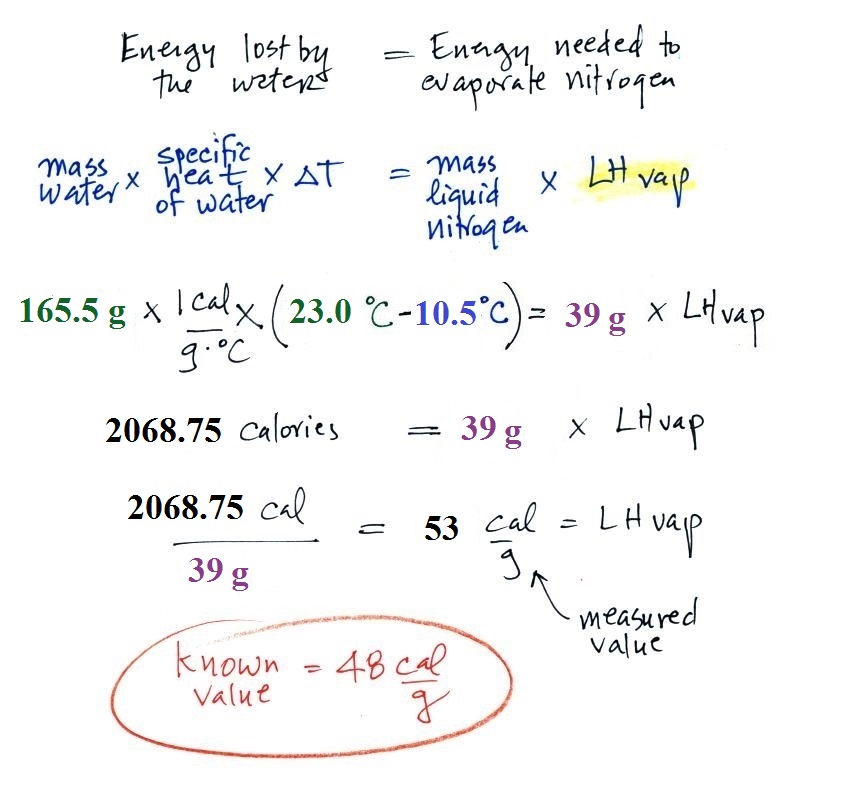 Energy lost by = Energy needed to
the water evaporate nitrogen
mass water x specific heat of water x ΔT = mass liquid nitrogen x LH vap
165.5 g x 1 cal / g·°C x (23.0 °C - 10.5°C) = 39 g x LH vap
2068.75 calories = 39 g x LH vap
2068.75 cal / 39 g = 53 cal / g = LH vap
measured
value
known value = 48 cal / g